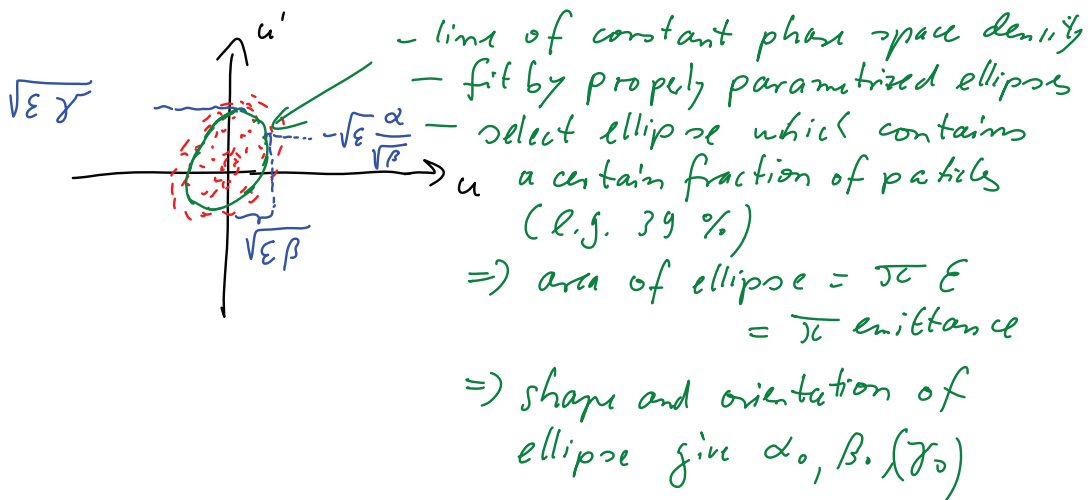 u'
- line of constant phase space density
√εγ
- fit by properly parametrized ellipses
- select ellipse which contains
-√ε α/√β
u
a certain fraction of particles
(e.g. 39 %)
√εβ
=> area of ellipse = π ε
= π emittance
=> shape and orientation of
ellipse give α₀, β₀, (γ₀)